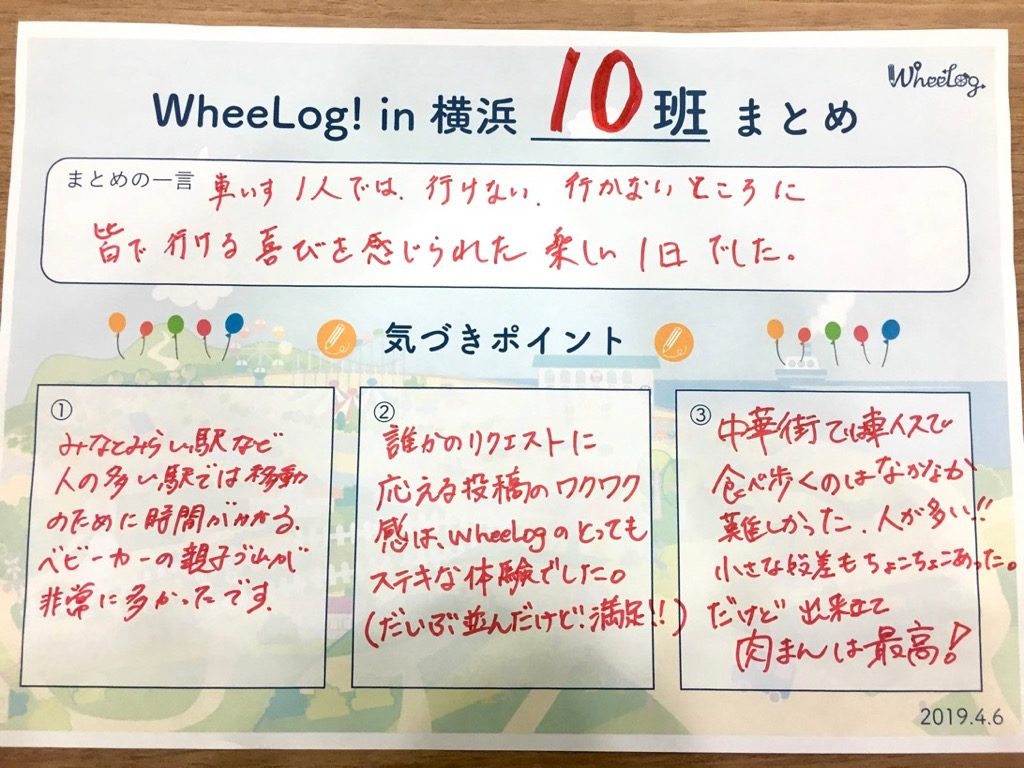 WheeLog.
WheeLog! in 横浜 10班 まとめ
まとめの一言 車いす1人では、行けない、行かないところに
皆で行ける喜びを感じられた楽しい1日でした。
気づきポイント
①
みなとみらい駅など
人の多い駅では移動
のために時間がかかる。
ベビーカーの親子づれが
非常に多かったです。
②
誰かのリクエストに
応える投稿のワクワク
感は、WheeLogのとっても
ステキな体験でした。
(だいぶ並んだけど!満足!!)
③
中華街では車イスで
食べ歩くのはなかなか
難しかった。人が多い!!
小さな段差もちょこちょこあった。
だけど出来立て
肉まんは最高!
2019.4.6